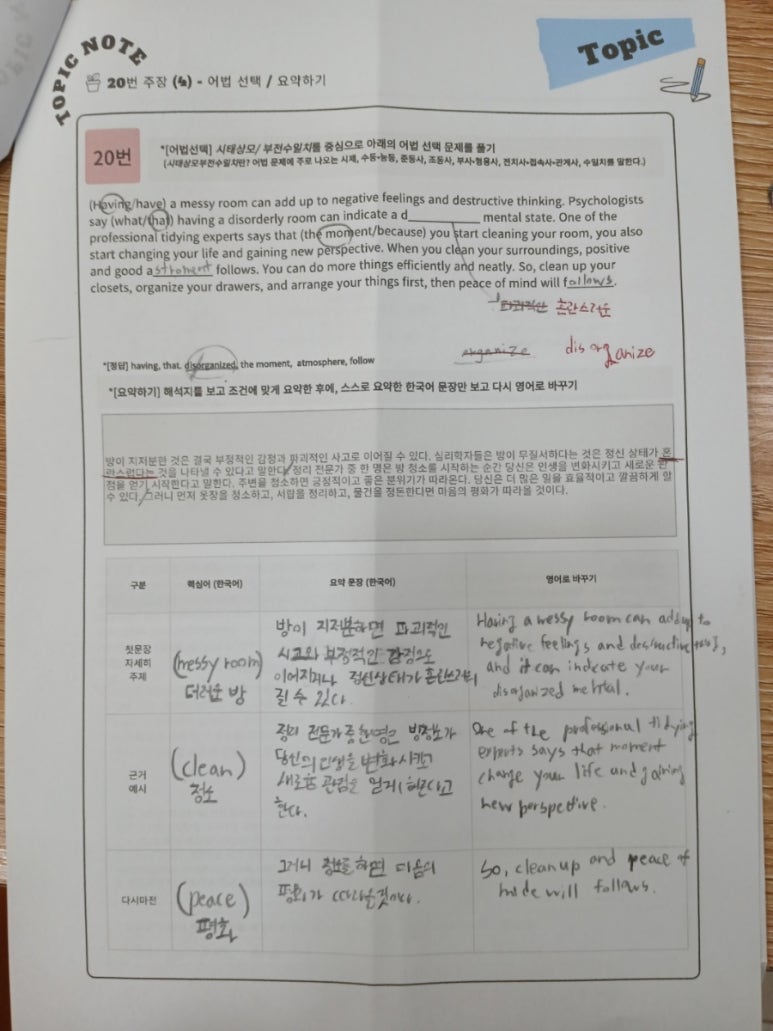 TOPIC NOTE
Topic
20번 주장 (4) - 어법 선택 / 요약하기
20번
*[어법선택] 시태상모/ 부전수일치를 중심으로 아래의 어법 선택 문제를 풀기
(시태상모부전수일치란? 어법 문제에 주로 나오는 시제, 수동•능동, 준동사, 조동사, 부사•형용사, 전치사•접속사•관계사, 수일치를 말한다.)
(Having/have) a messy room can add up to negative feelings and destructive thinking. Psychologists
say (what/that) having a disorderly room can indicate a d____________ mental state. One of the
professional tidying experts says that (the moment/because) you start cleaning your room, you also
start changing your life and gaining new perspective. When you clean your surroundings, positive
and good astroment follows. You can do more things efficiently and neatly. So, clean up your
closets, organize your drawers, and arrange your things first, then peace of mind will follows.
파괴적인 혼란스러운
organize disorganize
*[정답] having, that, disorganized, the moment, atmosphere, follow
*[요약하기] 해석지를 보고 조건에 맞게 요약한 후에, 스스로 요약한 한국어 문장만 보고 다시 영어로 바꾸기
방이 지저분한 것은 결국 부정적인 감정과 파괴적인 사고로 이어질 수 있다. 심리학자들은 방이 무질서하다는 것은 정신 상태가 혼
란스럽다는 것을 나타낼 수 있다고 말한다. 정리 전문가 중 한 명은 방 청소를 시작하는 순간 당신은 인생을 변화시키고 새로운 관
점을 얻기 시작한다고 말한다. 주변을 청소하면 긍정적이고 좋은 분위기가 따라온다. 당신은 더 많은 일을 효율적이고 깔끔하게 할
수 있다. 그러니 먼저 옷장을 청소하고, 서랍을 정리하고, 물건을 정돈한다면 마음의 평화가 따라올 것이다.
구분 핵심어 (한국어) 요약 문장 (한국어) 영어로 바꾸기
첫문장
자세히
주제
(messy room)
더러운 방
방이 지저분하면 파괴적인
사고와 부정적인 감정으로
이어지거나 정신상태가 혼란스러워
질 수 있다.
Having a messy room can add up to
negative feelings and destructive
and it can indicate your
disorganized mental.
근거
예시
(clean)
청소
정리 전문가 중 한명은 방청소가
당신의 인생을 변화시키고
새로운 관점을 얻게 한다고
한다.
One of the professional tidying
experts says that moment
change your life and gaining
new perspective.
다시마전
(peace)
평화
그러니 청소를 하면 마음의
평화가 따라올것이다.
So, clean up and peace of
minde will follows.